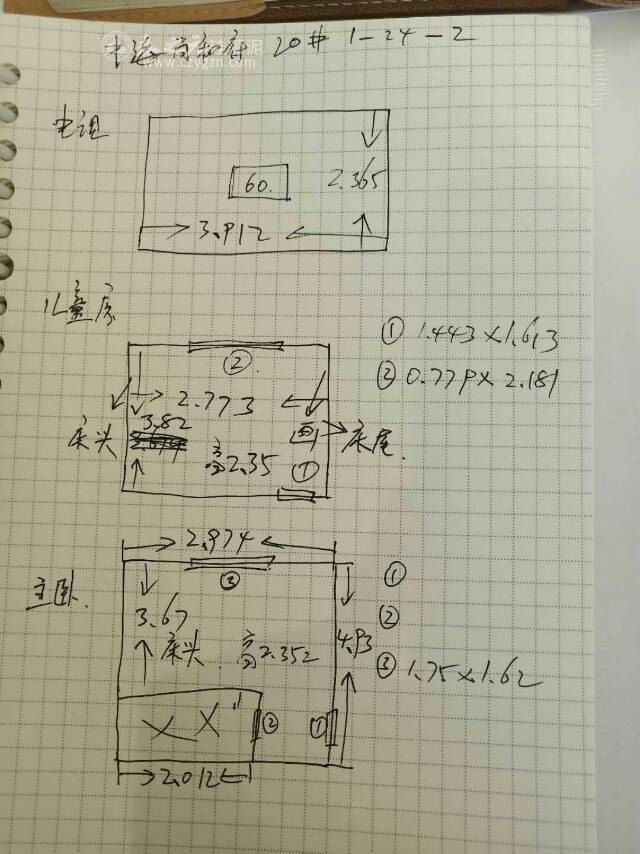 20# 1-24-2
www.czygzn.com
60.
2.365
3.912
儿童房
① 1.443×1.613
② 0.779×2.181
②
2.773
3.82
床头
画
床尾.
高2.35
①
2.974
③
主卧.
①
②
③ 1.75×1.62
3.67
4.93
床头
高2.352
②
①
2.012